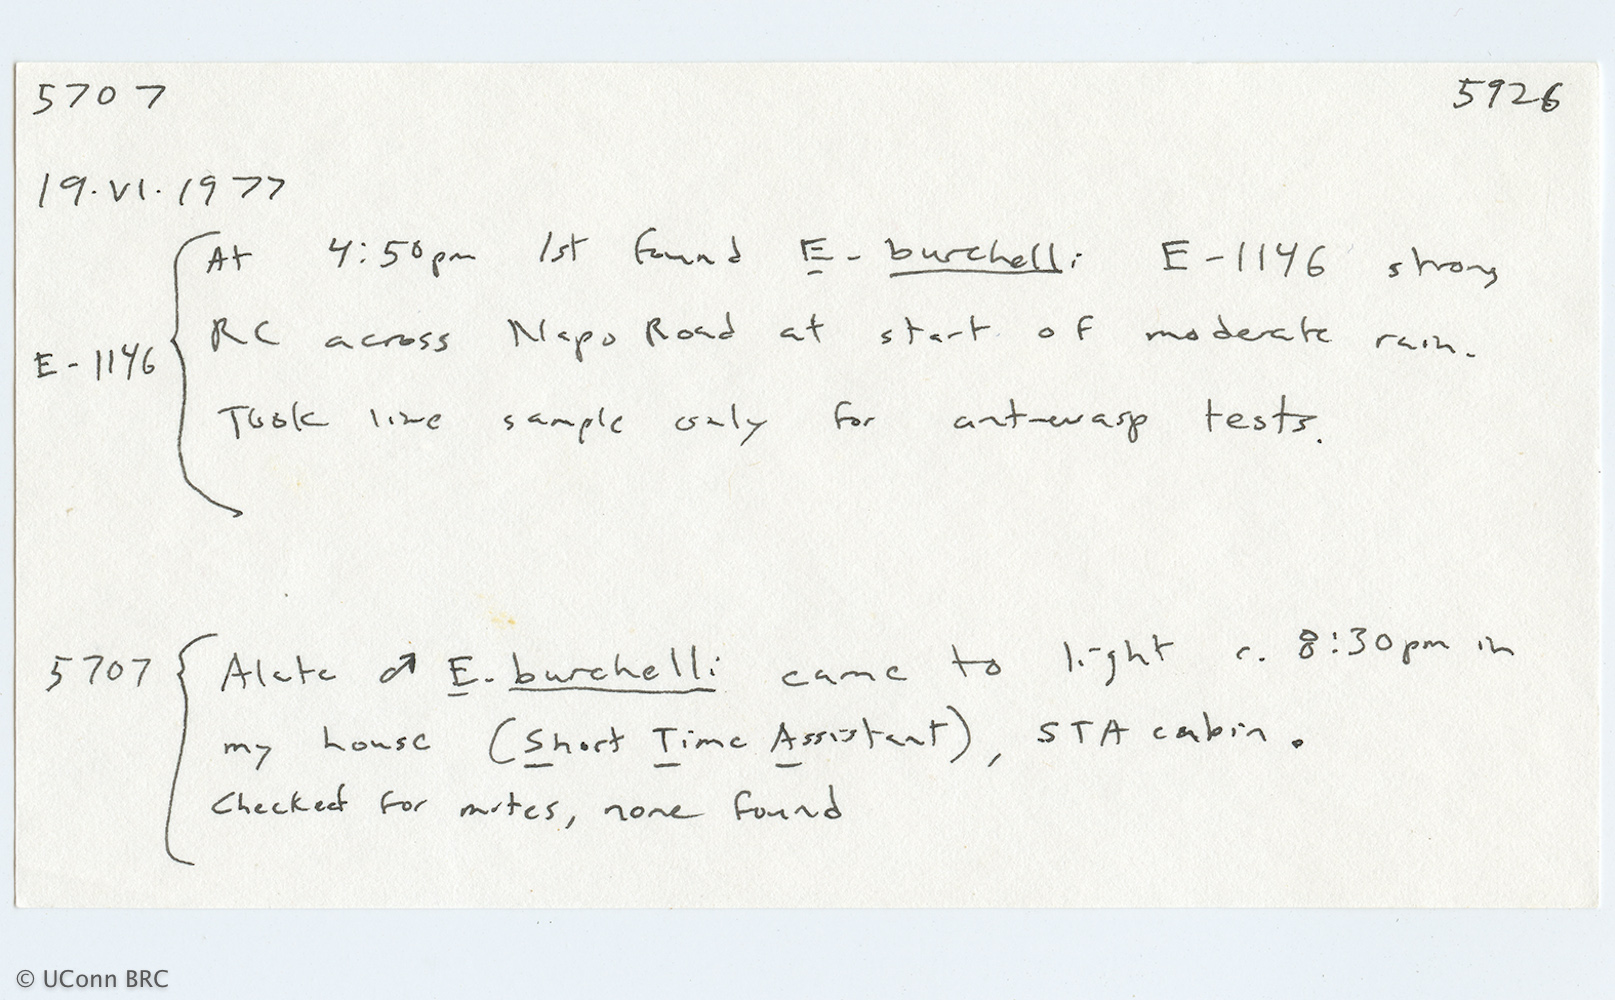 5707 5926
19.VI.1977
At 4:50pm 1st found E. burchelli E-1146 strong
RC across Napo Road at start of moderate rain.
E-1146
Took live sample only for ant-wasp tests.
5707 Alate ♂ E. burchelli came to light c. 8:30pm in
my house (Short Time Assistant), STA cabin.
Checked for mites, none found
© UConn BRC